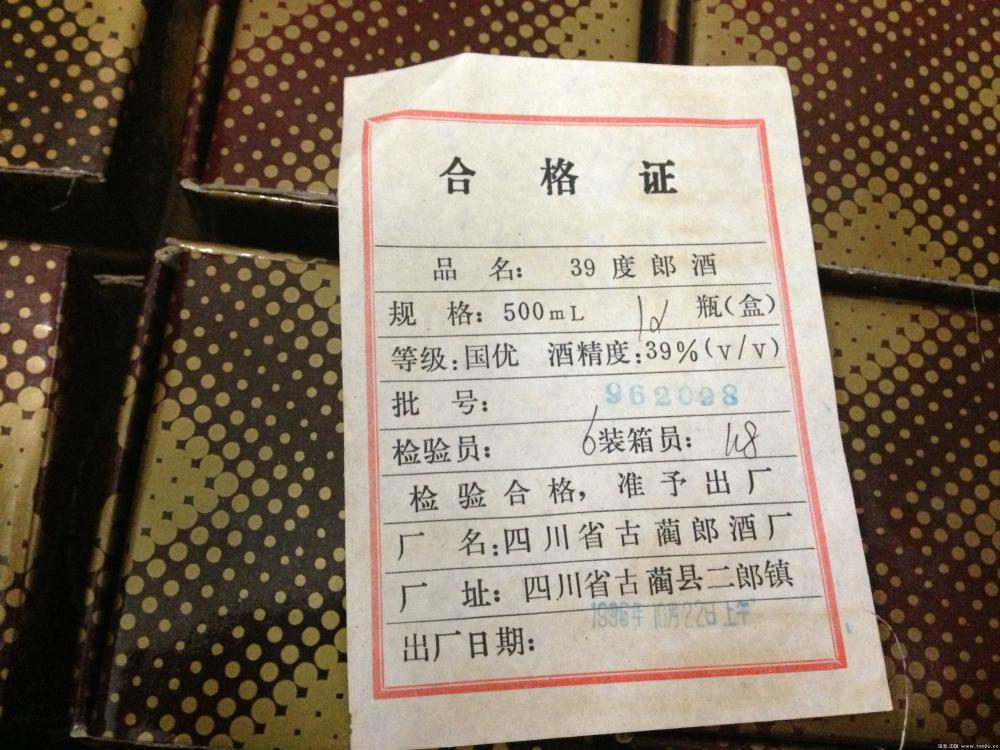 合格证
品 名： 39 度 郎 酒
规 格：500mL 12 瓶(盒)
等级：国优 酒精度：39%(v/v)
批 号： 962098
检验员： 6 装箱员： 48
检验合格，准予出厂
厂 名：四川省古蔺郎酒厂
厂 址：四川省古蔺县二郎镇
1996年 10月 22日 上午
出厂日期：